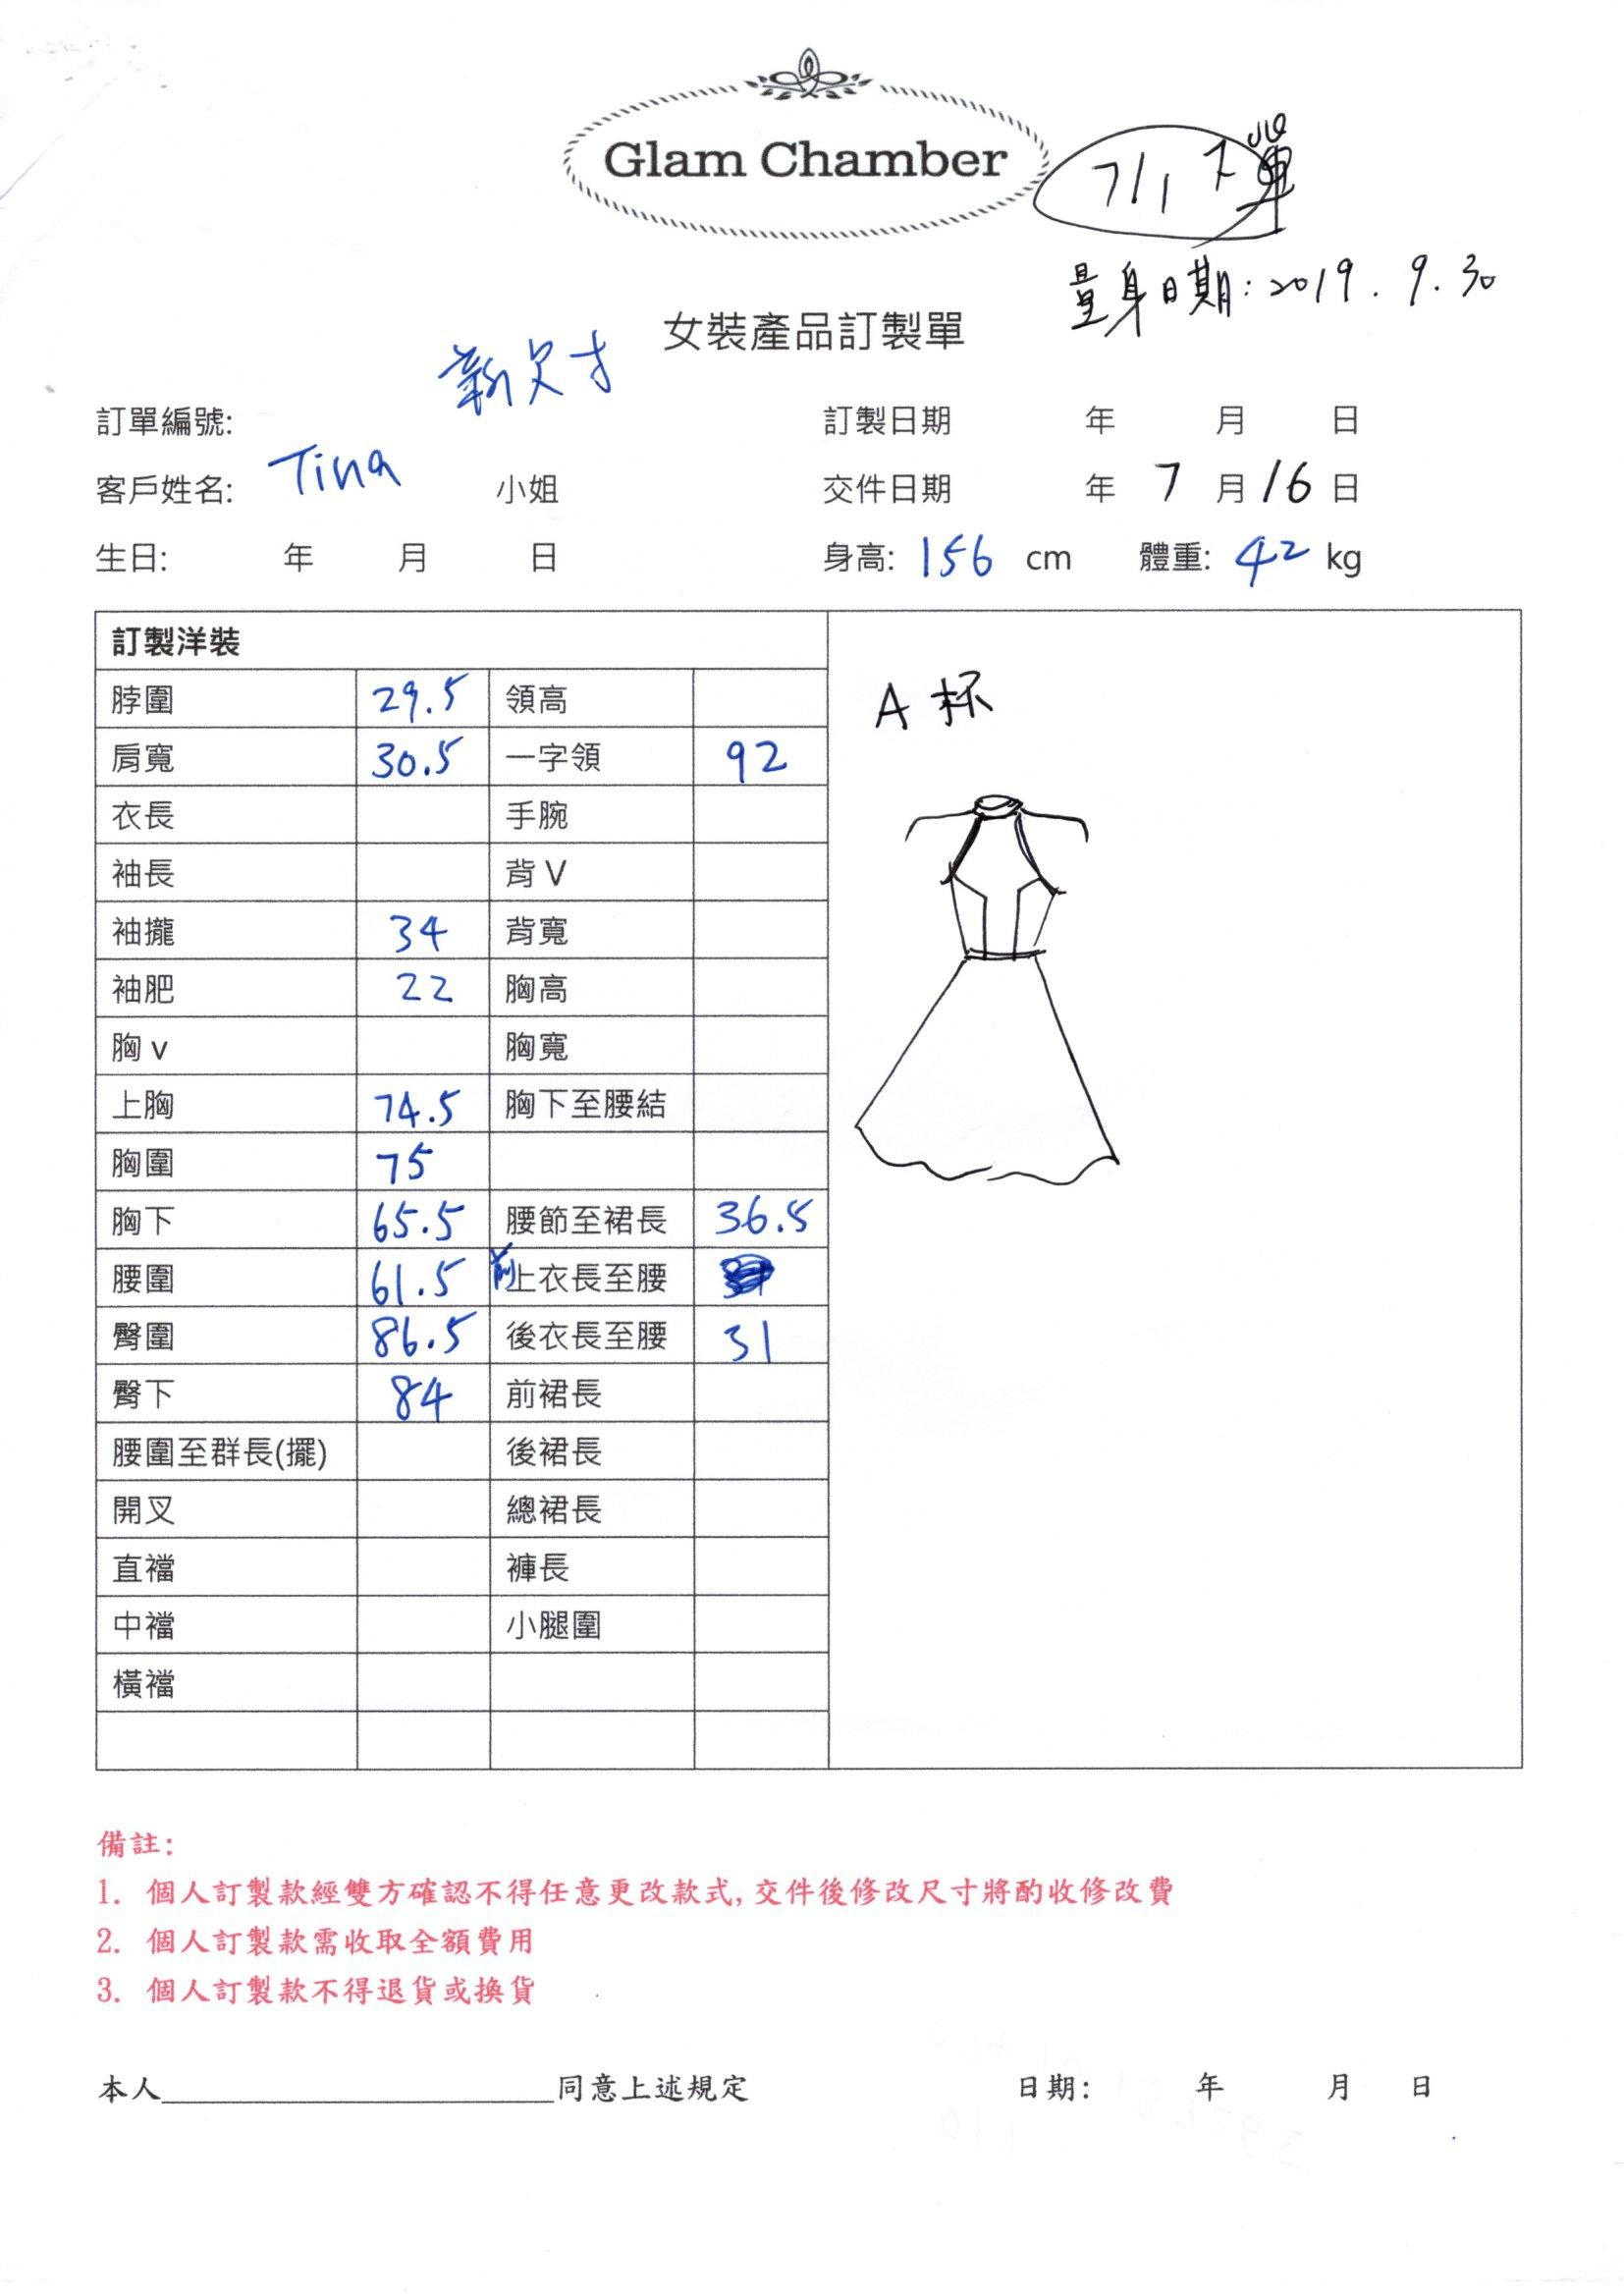 Glam Chamber
7/1 下單
量身日期:2019.9.30
女裝產品訂製單
新尺寸
訂單編號: 訂製日期 年 月 日
客戶姓名: Tina 小姐 交件日期 年 7 月 16 日
生日: 年 月 日 身高: 156 cm 體重: 42 kg
訂製洋裝
A 杯
脖圍 29.5 領高
肩寬 30.5 一字領 92
衣長 手腕
袖長 背 V
袖攏 34 背寬
袖肥 22 胸高
胸 v 胸寬
上胸 74.5 胸下至腰結
胸圍 75
胸下 65.5 腰節至裙長 36.5
腰圍 61.5 前上衣長至腰
臀圍 86.5 後衣長至腰 31
臀下 84 前裙長
腰圍至群長(擺) 後裙長
開叉 總裙長
直襠 褲長
中襠 小腿圍
橫襠
備註:
1. 個人訂製款經雙方確認不得任意更改款式,交件後修改尺寸將酌收修改費
2. 個人訂製款需收取全額費用
3. 個人訂製款不得退貨或換貨
本人____________________同意上述規定 日期: 年 月 日